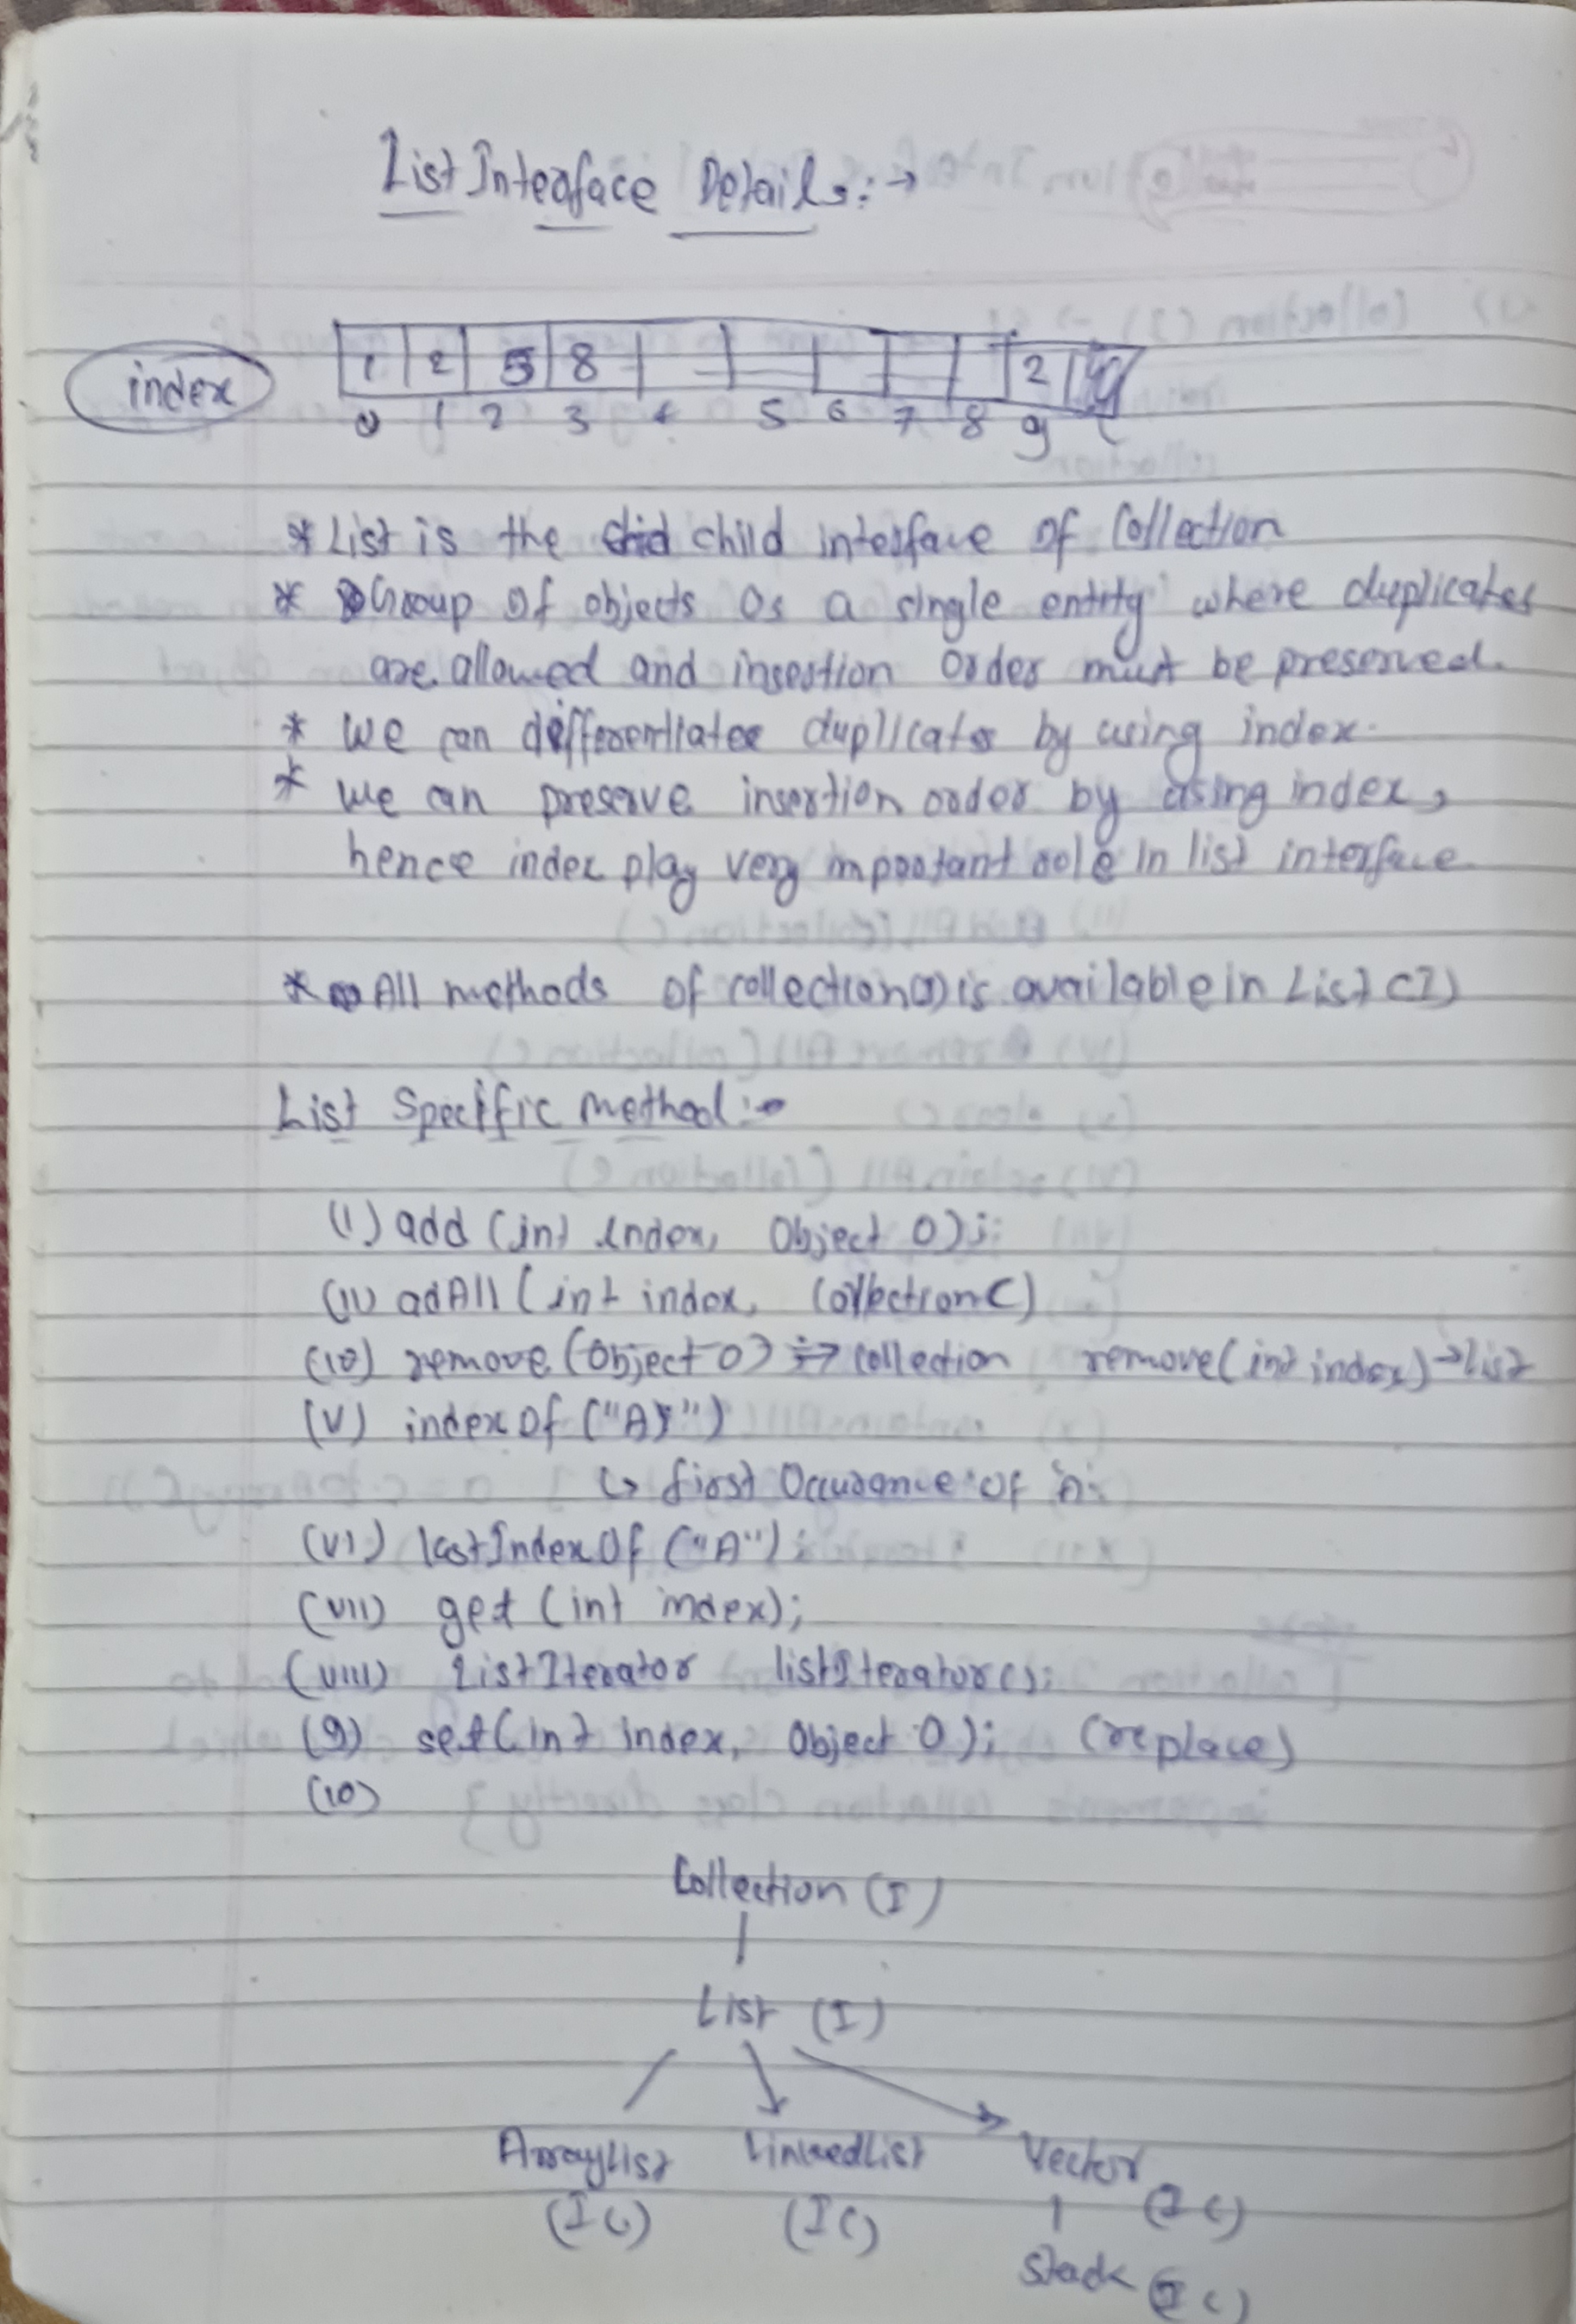 List Interface Details:→
1 2 5 8 2
index
0 1 2 3 4 5 6 7 8 9
* List is the child interface of Collection
* Group of objects as a single entity where duplicates
are allowed and insertion order must be preserved.
* we can differentiatee duplicates by using index.
* we can preserve insertion order by using index,
hence index play very mpoortant role in list interface
* All methods of collection(I) is available in List (I)
List Specific method :→
(i) add (int index, Object O);
(ii) adAll (int index, Collection C)
(iv) remove (Object O) → collection remove (int index) → list
(V) index Of ("A")
↳ first Occurance of 'A'
(vi) lastIndexOf ("A");
(vii) get (int index);
(viii) ListIterator listIterator();
(9) set (int index, Object O); (replace)
(10)
Collection (I)
List (I)
ArrayList LinkedList Vector
(I C) (I C) (I C)
Stack (I C)